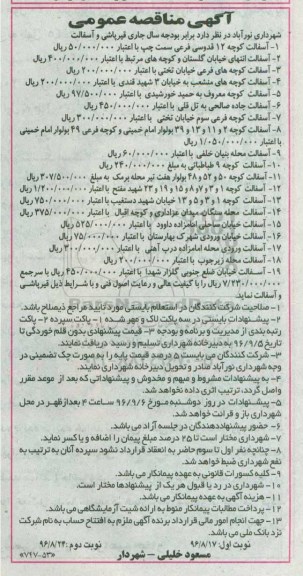 آگهی مناقصه عمومی
شهرداری نورآباد در نظر دارد برابر بودجه سال جاری قیرپاشی و آسفالت
۱- آسفالت کوچه ۱۲ فدوسی فرعی سمت چپ با اعتبار ۵۰/۰۰۰/۰۰۰ ریال
۲- آسفالت انتهای خیابان گلستان و کوچه های مرتبط با اعتبار ۴۰۰/۰۰۰/۰۰۰ ریال
۳- آسفالت کوچه های فرعی خیابان تختی با اعتبار ۲۰۰/۰۰۰/۰۰۰ ریال
۴- آسفالت کوچه های منشعب به خیابان ۳ شهید قندی با اعتبار ۲۰۰۰۰۰۰۰۰ ریال
۵- آسفالت کوچه معروف به حمید خورشیدی با اعتبار ۹۷/۵۰۰/۰۰۰ ریال
۶- آسفالت جاده مصالحی به تل قلی با اعتبار ۴۵۰/۰۰۰/۰۰۰ ریال
۷- آسفالت کوچه فرعی سوم خیابان تختی با اعتبار ۳۰۰/۰۰۰/۰۰۰ ریال
۸- آسفالت کوچه ۲ و ۱۱ و ۱۳ و ۳۹ بولوار امام خمینی و کوچه فرعی ۴۹ بولوار امام خمینی با اعتبار ۱/۰۵۰/۰۰۰/۰۰۰ ریال
۹- آسفالت محله بنیان خلفی با اعتبار ۶۰/۰۰۰/۰۰۰ ریال
۱۰- آسفالت کوچه ۹ طباطبائی به مبلغ ۲۴۰/۰۰۰/۰۰۰ ریال
۱۱- آسفالت کوچه ۵۰ و ۵۴ و ۴۸ بولوار هفت تیر محله برمک به مبلغ ۳۰۷/۵۰۰/۰۰۰ ریال
۱۲- آسفالت کوچه ۱ و ۳ و ۷ و ۸ و ۱۵ و ۱۹ و ۲۳ شهید مفتح با اعتبار ۱/۲۰۰/۰۰۰/۰۰۰ ریال
۱۳- آسفالت کوچه ۱ و ۳ و ۵ و ۱۳ خیابان شهید دستغیب با اعتبار ۷۵۰/۰۰۰/۰۰۰ ریال
۱۴- آسفالت محله نیکان میدان عزاداری و کوچه اقبال با اعتبار ۳۷۵/۰۰۰/۰۰۰ ریال
۱۵- آسفالت خیابان ساحلی امامزاده داوود با اعتبار ۵۲۵/۰۰۰/۰۰۰ ریال
۱۶- آسفالت خیابان ورودی شهرک بهارستان با اعتبار ۷۵/۰۰۰/۰۰۰ ریال
۱۷- آسفالت ورودی محله امامزاده درب آهنی با اعتبار ۳۰۰/۰۰۰/۰۰۰ ریال
۱۸- آسفالت محله زیرجوب با اعتبار ۲۰۰/۰۰۰/۰۰۰ ریال
۱۹- آسفالت خیابان ضلع جنوبی گلزار شهدا با اعتبار ۴۵۰/۰۰۰/۰۰۰ ریال با سرجمع ۷/۲۳۰/۰۰۰/۰۰۰ ریال را با کیفیت عالی و رعایت اصول فنی و با شرایط ذیل قیرپاشی و آسفالت نماید.
۱- صلاحیت شرکت کنندگان در استعلام بایستی مورد تایید مراجع ذیصلاح باشد.
۲- پیشنهادات بایستی در سه پاکت لاک و مهر شده ۱- پاکت سپرده ۲- پاکت رتبه بندی از مدیریت و برنامه و بودجه ۳- قیمت پیشنهادی بدون قلم خوردگی تا تاریخ ۹۶/۹/۵ به دبیرخانه شهرداری تسلیم و رسید دریافت نمایند.
۳- شرکت کنندگان می بایست ۵ درصد قیمت پایه را به صورت چک تضمینی در وجه شهرداری نورآباد صادر و تحویل دبیرخانه شهرداری نمایند.
۴- به پیشنهادات مشروط و مبهم و مخدوش و پیشنهاداتی که بعد از موعد مقرر واصل گردد، ترتیب اثری داده نخواهد شد.
۵- پیشنهادات در روز دوشنبه مورخ ۹۶/۹/۶ ساعت ۴ بعدازظهر در محل شهرداری باز و قرائت خواهد شد.
۶- حضور پیشنهاددهندگان در جلسه آزاد می باشد.
۷- شهرداری مختار است تا ۲۵ درصد مبلغ پیمان را اضافه و یا کسر نماید.
۸- چنانچه نفر اول تا سوم حاضر به انعقاد قرارداد نشود سپرده آنان به ترتیب به نفع شهرداری ضبط خواهد شد.
۹- کلیه کسورات قانونی به عهده پیمانکار می باشد.
۱۰- شهرداری در رد یا قبول هر یک از پیشنهادها مختار است.
۱۱- هزینه آگهی به عهده پیمانکار می باشد.
۱۲- پرداخت مطالبات پیمانکار منوط به ارائه شیت آزمایشگاهی می باشد.
۱۳- جهت انجام امور مالی قرارداد برنده آگهی ملزم به افتتاح حساب به نام شرکت نزد بانک ملی می باشد.
نوبت اول: ۹۶/۸/۱۷ نوبت دوم: ۹۶/۸/۲۴
مسعود خلیلی - شهردار